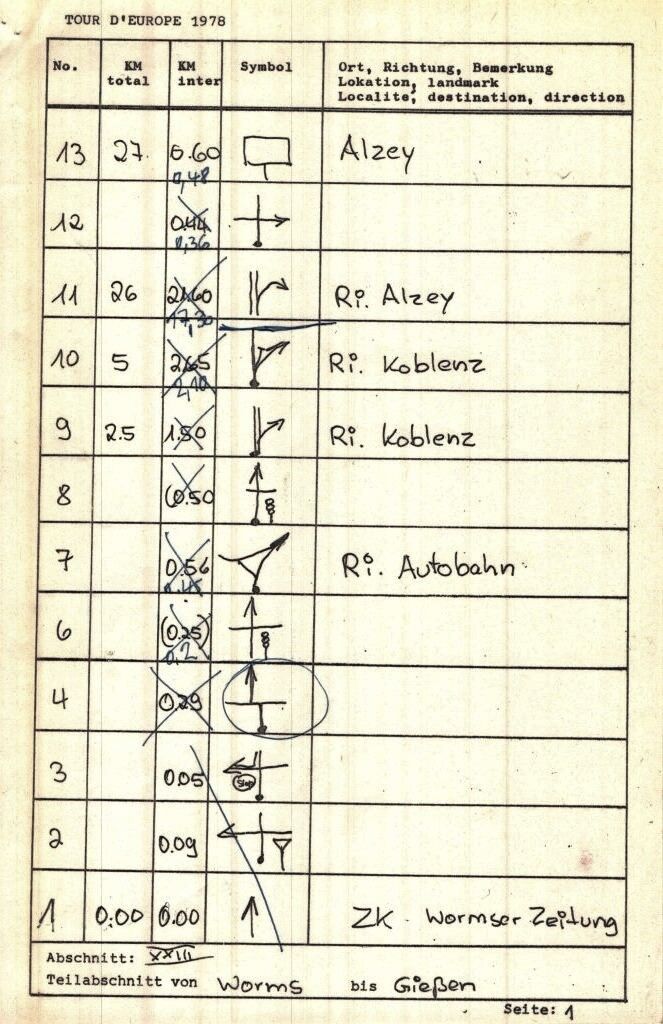 TOUR D'EUROPE 1978
No. KM total KM inter Symbol Ort, Richtung, Bemerkung
Lokation, landmark
Localite, destination, direction
13 27. 0.60 Alzey
0,48
12 0.44
0,36
11 26 21.60 Ri. Alzey
17,30
10 5 2.65 Ri. Koblenz
2,10
9 2.5 1.50 Ri. Koblenz
8 (0.50
7 0.56 Ri. Autobahn
0.45
6 (0.25)
0,2
4 0.29
3 0.05 Stop
2 0.09
1 0.00 0.00 ZK - Wormser Zeitung
Abschnitt: XXIII
Teilabschnitt von Worms bis Gießen
Seite: 1